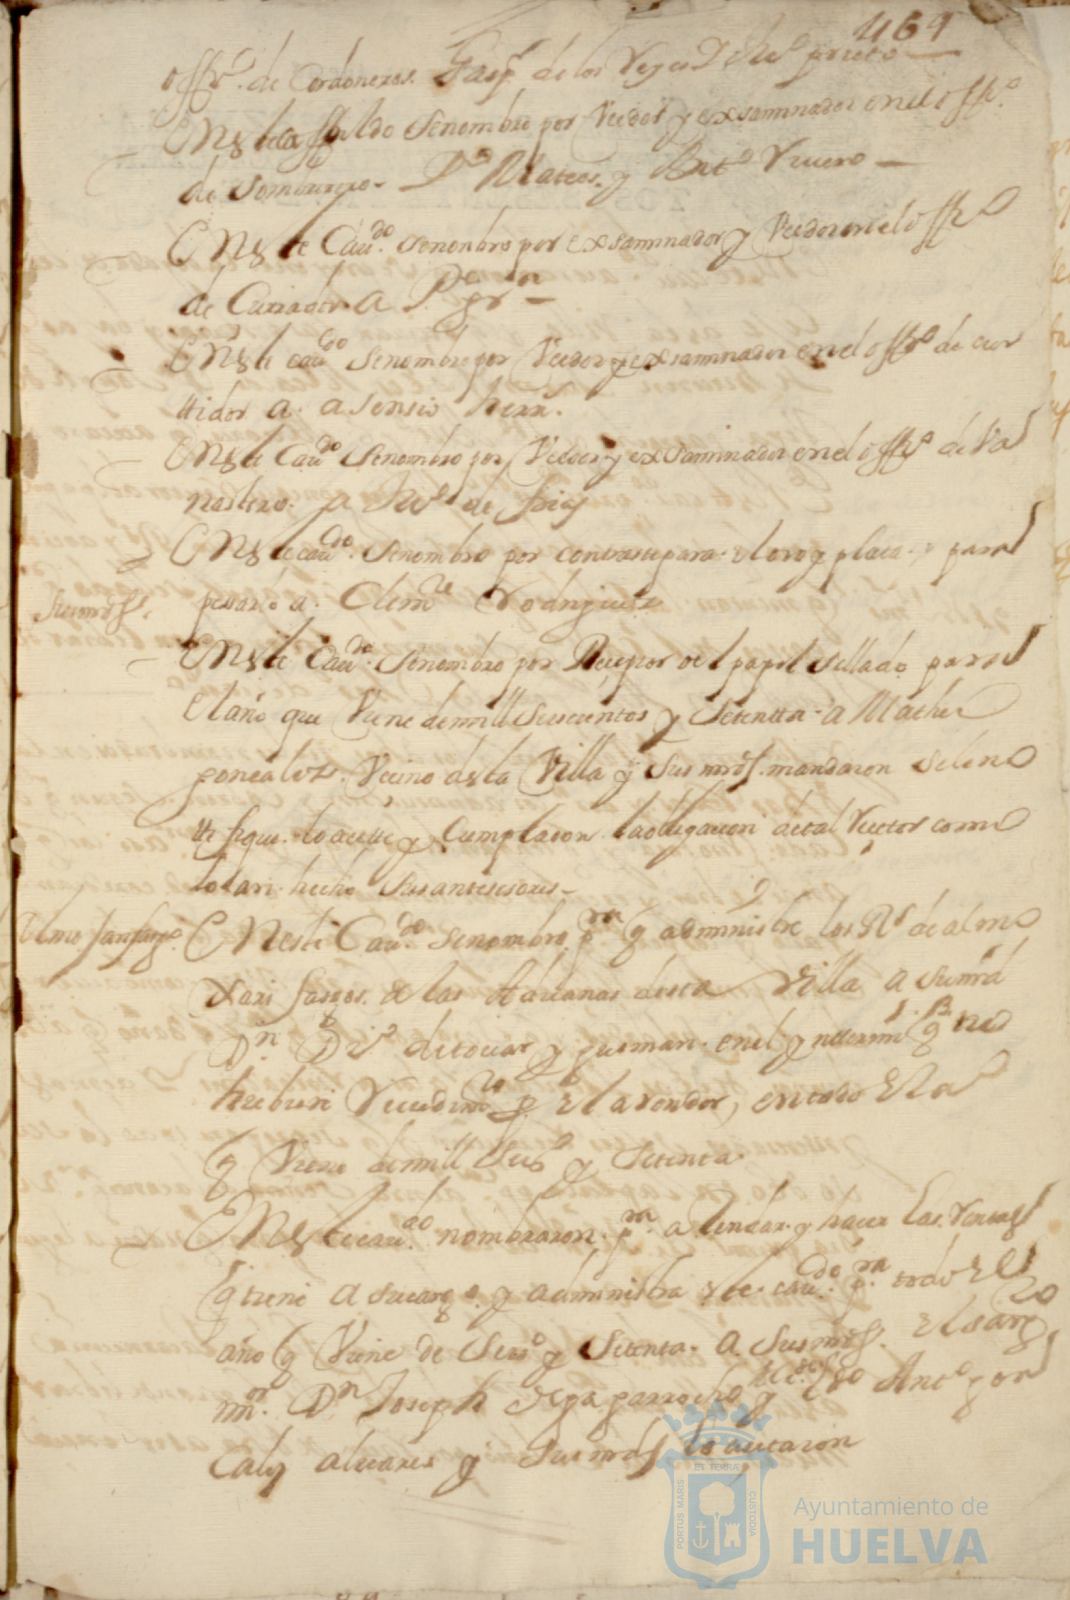 469
offiº. de Cordoneros. Gasp.r de los Reyes y Juº prieto
En este Cauildo Senombro por Veedor y exsaminador enel offº.
de sombrerero. Pº Mateos. y Antº Viuero
En este Cauºdo. senonbro por exsaminador y Veedor en el offº
de Curiador a Pº grª
En este cauºdo Senombro por Veedor y exsaminador en el offº de cur
tidor a. asensio herrª.
En este Cauºdo Senombro por Veedor y exsaminador en el offº de Va
nastero. a Juº de frias
En este cauºdo. Senombro por contraste para. el oro y plata. y para
pesarlo a. Clemte Rodriguez
En este Cauºdo. Senombro por Receptor del papel sellado para
El año que Viene de mill Seiscientos y Setentta. a Matheo
gonçalez. Veçino desta Villa y sus mrds. mandaron sele no
tifique. lo acepte y Cumpla con la obligacion de tal Rector como
lo an hecho sus antesesores
En este Cauºdo. senombro pra q administre los Rs de almo
xarifasgos. de las Aduanas desta Villa a su mrd
Dn. Diº de touar y gusman. en el ynterin q no
hubiere Recudimto pº El arendor, en todo El año
q Viene de mill Seisº y Setenta.
En este cauºdo nombraron. pra. a Rendar. y hacer las Rentas
q tiene a su cargo. y administra este cauºdo. pra. todo El
año q Viene de Seisº y Setenta. a sus mrds. El sarg
mor. Dn Joseph de gaparrocho y Antº gon
calez aluares y Sus mrds lo acetaron
PORTUS MARIS
ET TERRÆ
CUSTODIA
Ayuntamiento de
HUELVA